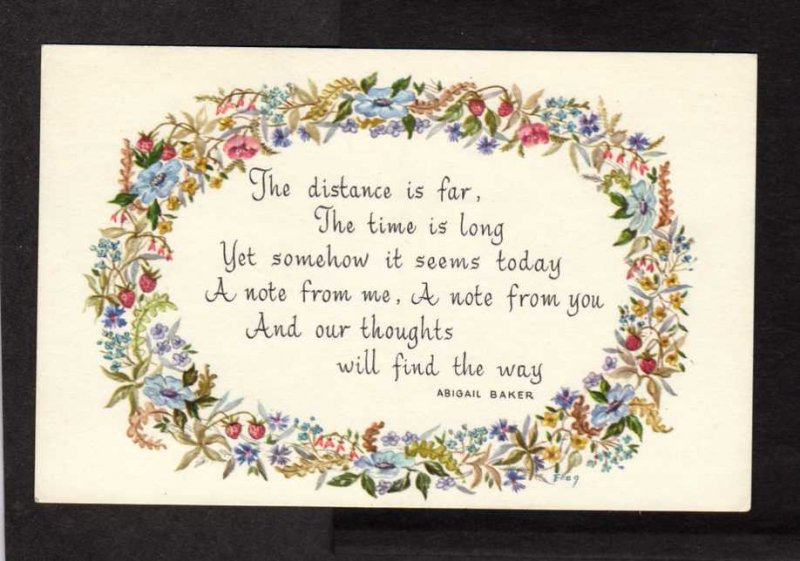 The distance is far,
The time is long
Yet somehow it seems today
A note from me, A note from you
And our thoughts
will find the way
ABIGAIL BAKER